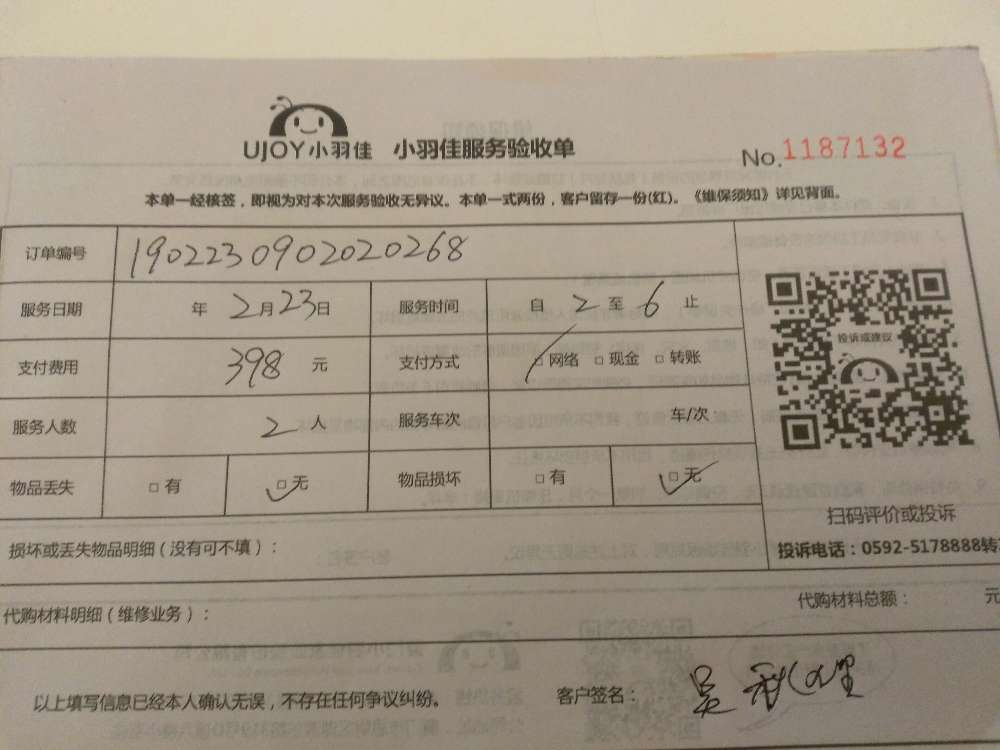 UJOY小羽佳 小羽佳服务验收单
No.1187132
本单一经核签，即视为对本次服务验收无异议。本单一式两份，客户留存一份(红)。《维保须知》详见背面。
订单编号 190223090202020268
服务日期 年 2月23日 服务时间 自 2 至 6 止
支付费用 398 元 支付方式 □网络 □现金 □转账
服务人数 2 人 服务车次 车/次
物品丢失 □有 □无 物品损坏 □有 □无
投诉或建议
扫码评价或投诉
投诉电话：0592-5178888转
损坏或丢失物品明细（没有可不填）：
代购材料明细（维修业务）： 代购材料总额： 元
以上填写信息已经本人确认无误，不存在任何争议纠纷。 客户签名： 吴